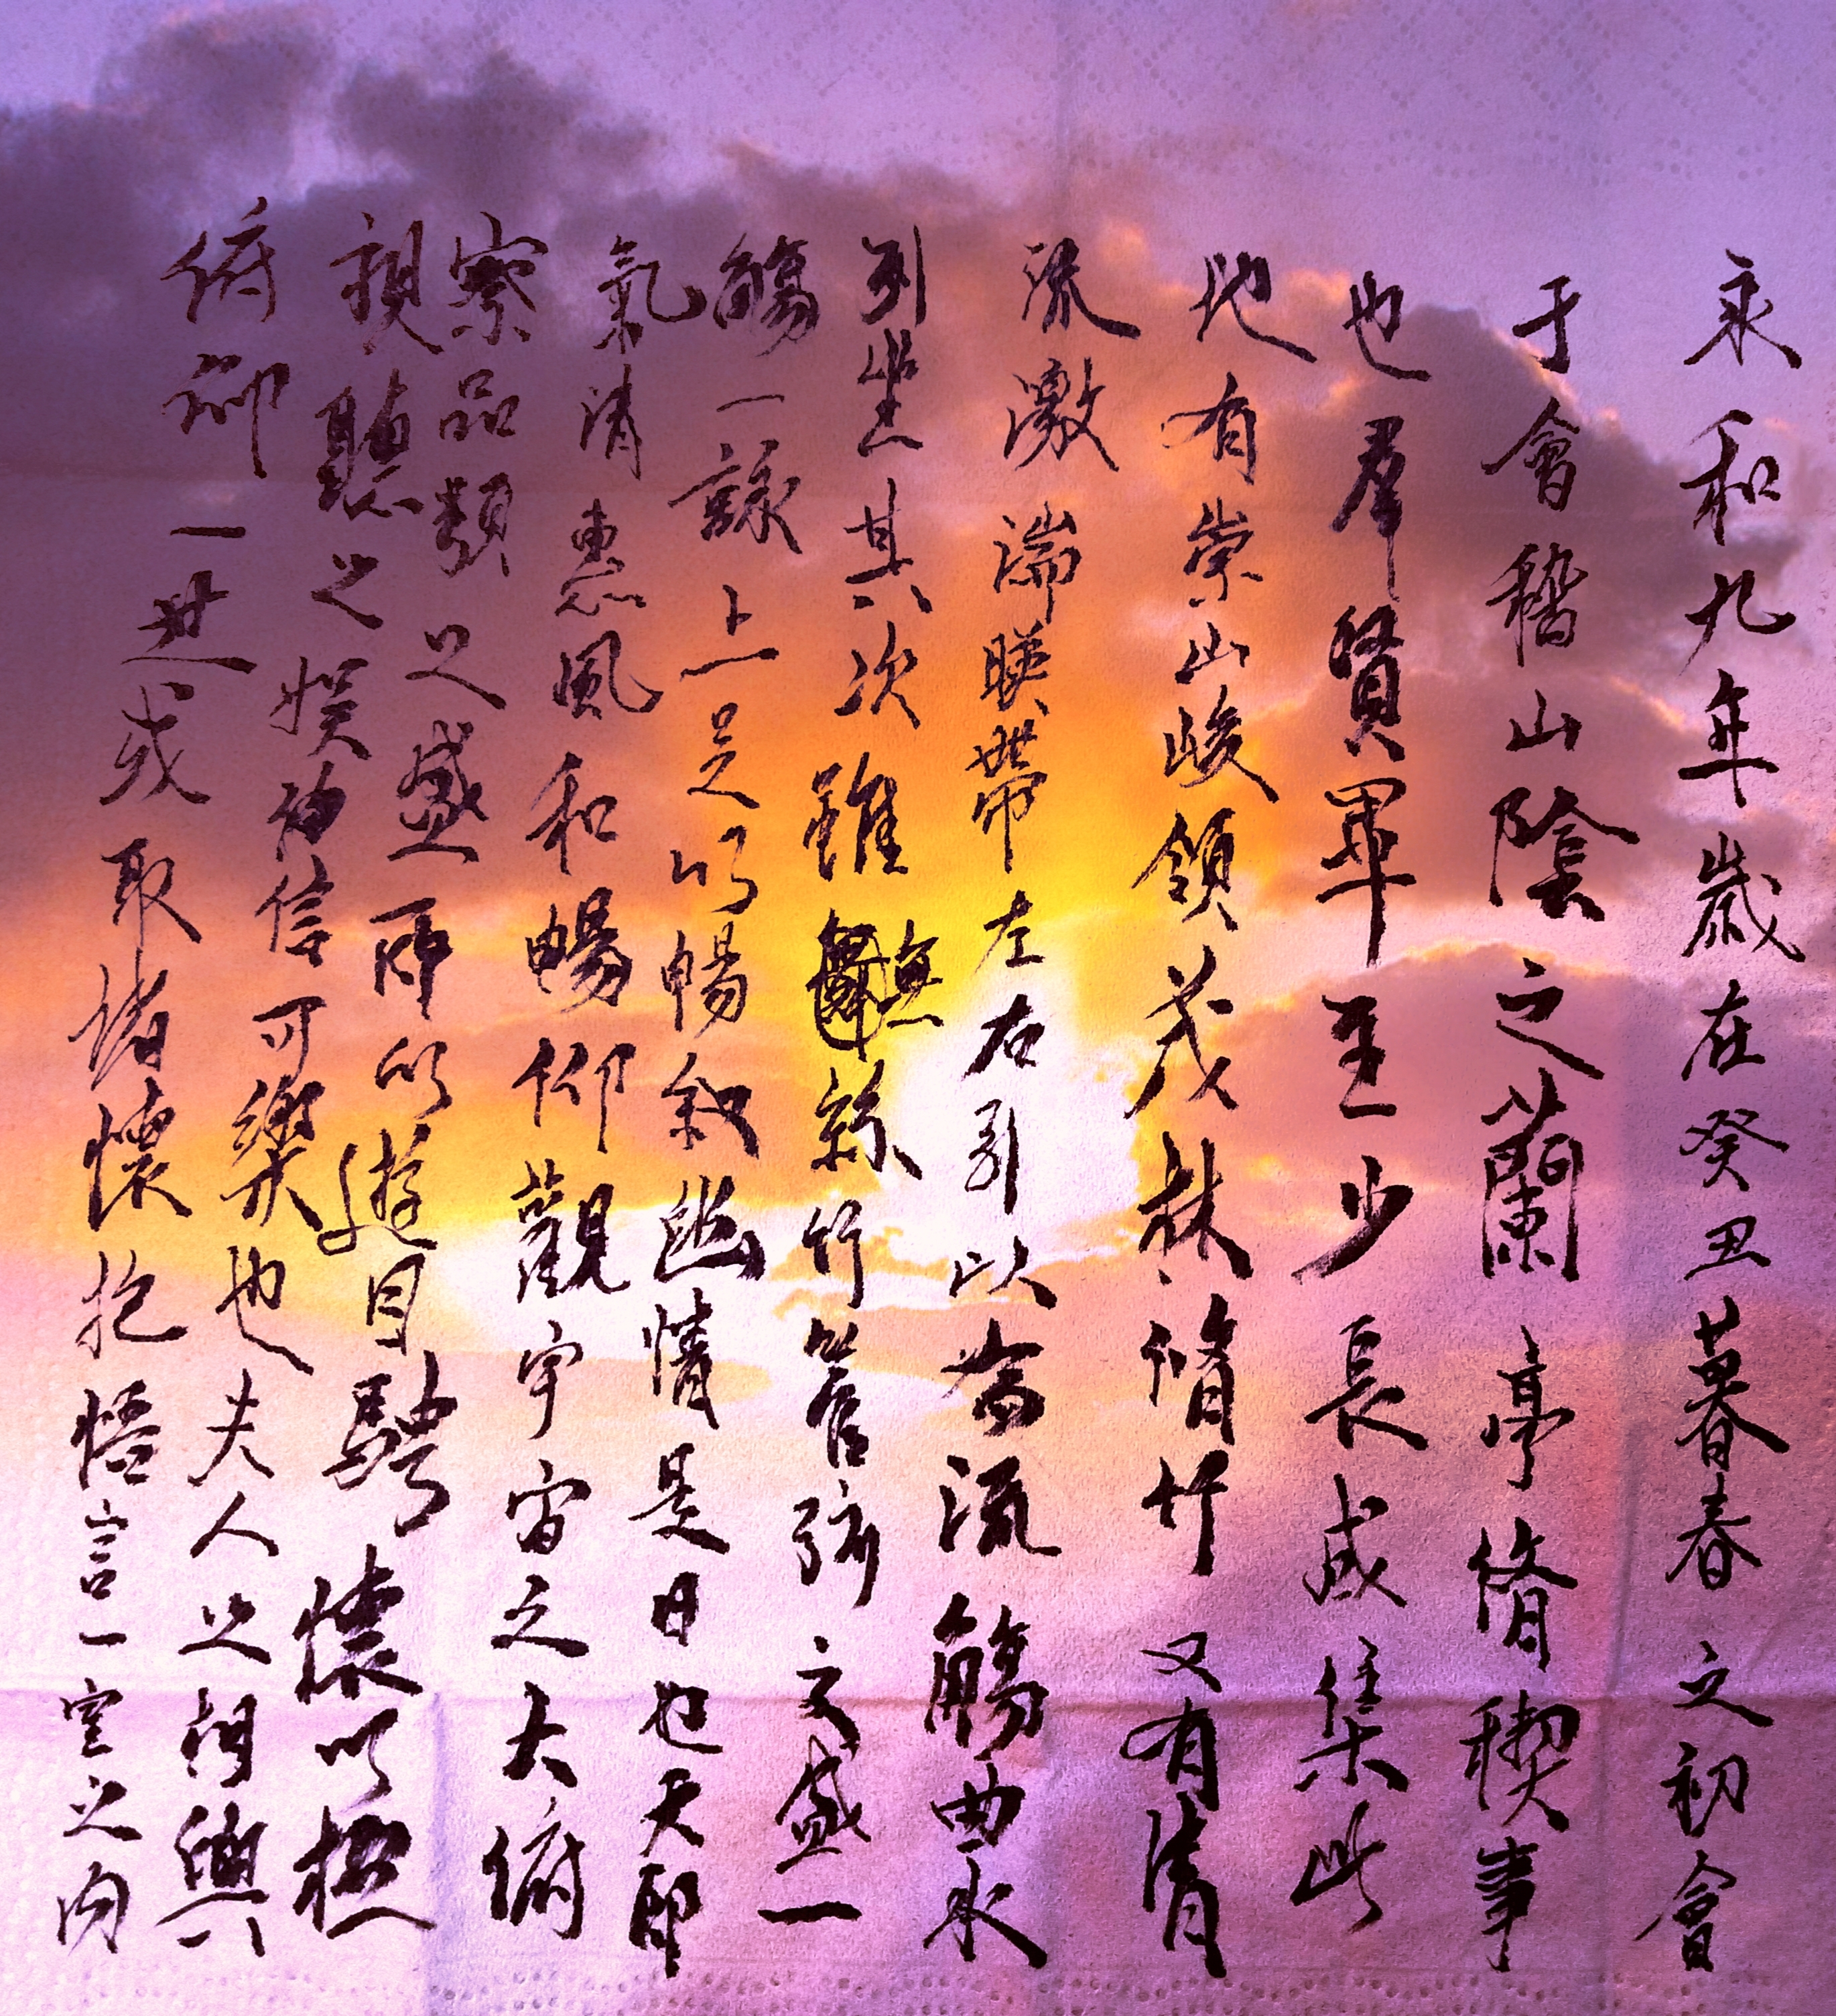 永和九年歲在癸丑暮春之初會
于會稽山陰之蘭亭脩稧事
也羣賢畢至少長咸集此
地有崇山峻領茂林脩竹又有清
流激湍暎帶左右引以為流觴曲水
列坐其次雖無絲竹管弦之盛一
觴一詠亦足以暢敘幽情是日也天朗
氣清惠風和暢仰觀宇宙之大俯
察品類之盛所以遊目騁懷以極
視聽之娛信可樂也夫人之相與
俯仰一世或取諸懷抱悟言一室之內